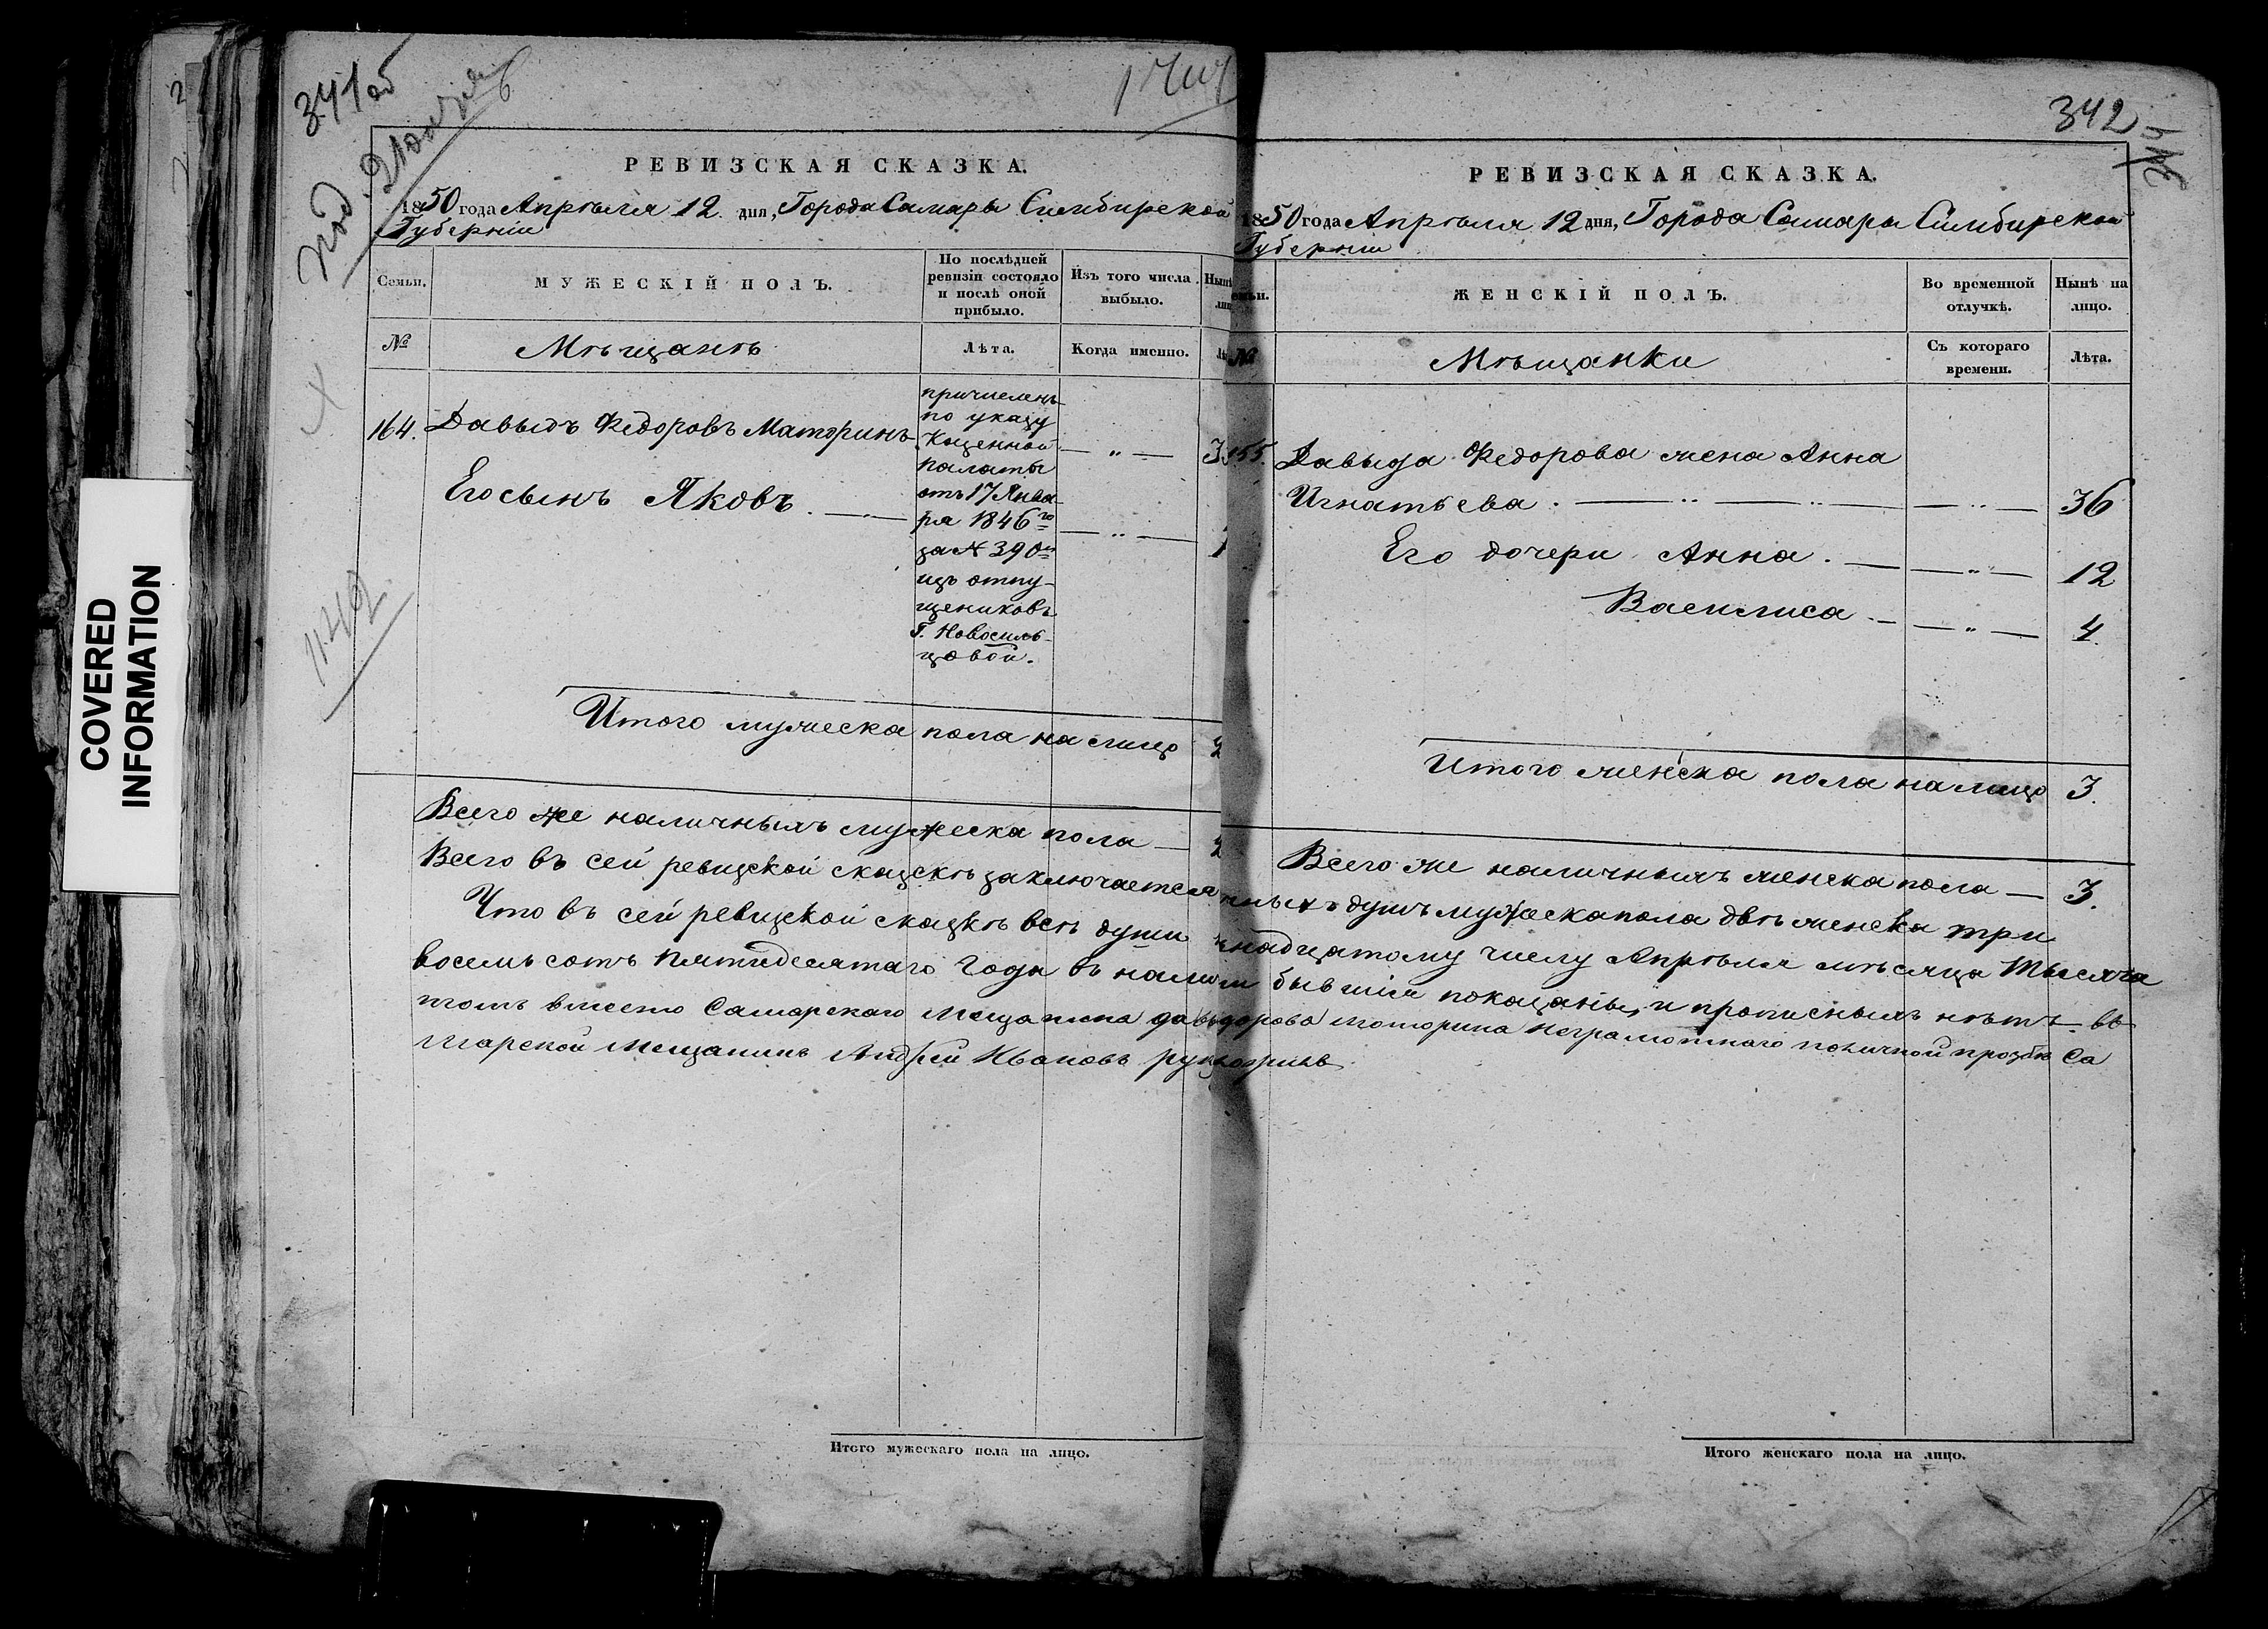 341 об
342
РЕВИЗСКАЯ СКАЗКА.
1850 года Апрѣля 12. дня, Города Самары Симбирской
Губерніи
Семьи.
МУЖЕСКІЙ ПОЛЪ.
По послѣдней
ревизіи состояло
и послѣ оной
прибыло.
Изъ того числа
выбыло.
№
Мѣщанѣ
Лѣта.
Когда именно.
164. Давыдъ Федоровъ Маторинъ
Его сынъ Яковъ.
причисленъ
по указу
Казенной
палаты
отъ 17 Янва-
ря 1846го
за № 390м
изъ отпу-
щениковъ
Г. Новосиль-
цовой.
Итого мужеска пола на лицо 2
Всего же наличныхъ мужеска пола — 2
Всего въ сей ревизской сказкѣ заключается
Что въ сей ревизской сказкѣ всѣ души
восемь сотъ Пятидесятаго Года въ
томъ вместо Самарскаго Мещанина
марской Мещанинъ Андрей Ивановъ
Итого мужескаго пола на лицо.
РЕВИЗСКАЯ СКАЗКА.
1850 года Апрѣля 12 дня, Города Самары Симбирской
Губерніи
ЖЕНСКІЙ ПОЛЪ.
Во временной
отлучкѣ.
Нынѣ на
лицо.
№
Мѣщанки
Съ котораго
времени.
Лѣта.
155. Давыда Федорова жена Анна
Игнатьева. — " — 36
Его дочери Анна. — " — 12
Василиса — " — 4.
Итого женска пола на лицо 3.
Всего же наличныхъ женска пола — 3.
душъ мужеска пола двѣ женска три
надцатому числу Апрѣля мѣсяца Тысяча
бывшія показаны, и прописныхъ нѣтъ въ
Моторина неграмотнаго по личной прозбѣ Са
Итого женскаго пола на лицо.
COVERED
INFORMATION